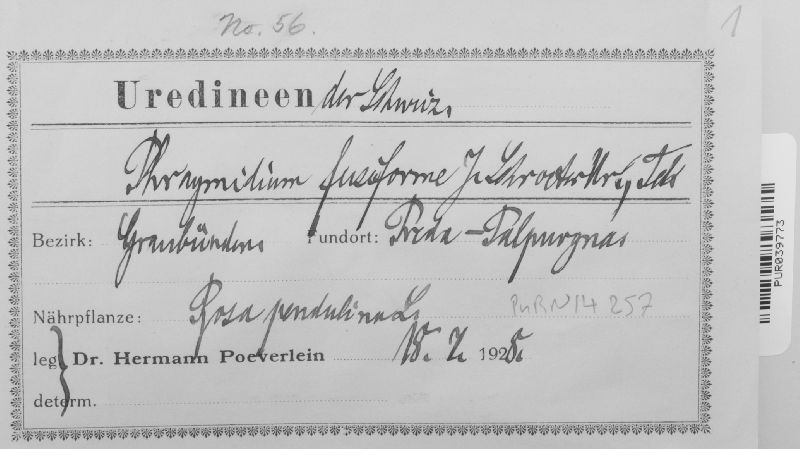 No. 56.
1
Uredineen der Schweiz.
Phragmidium fusiforme J. Schroeter
Bezirk: Graubünden. Fundort: Preda - Palpuogna.
Nährpflanze: Rosa pendulina L.
PURN14257
leg. Dr. Hermann Poeverlein 18. 7. 1928.
determ.
PUR039773